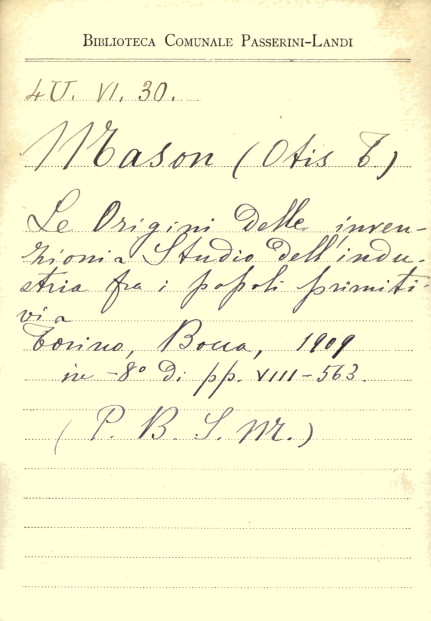 BIBLIOTECA COMUNALE PASSERINI-LANDI
4U. VI. 30.
Mason (Otis T.)
Le Origini delle inven-
zioni. Studio dell'indu-
stria fra i popoli primiti-
vi.
Torino, Bocca, 1909
in-8° di pp. VIII-563.
(P. B. S. M.)